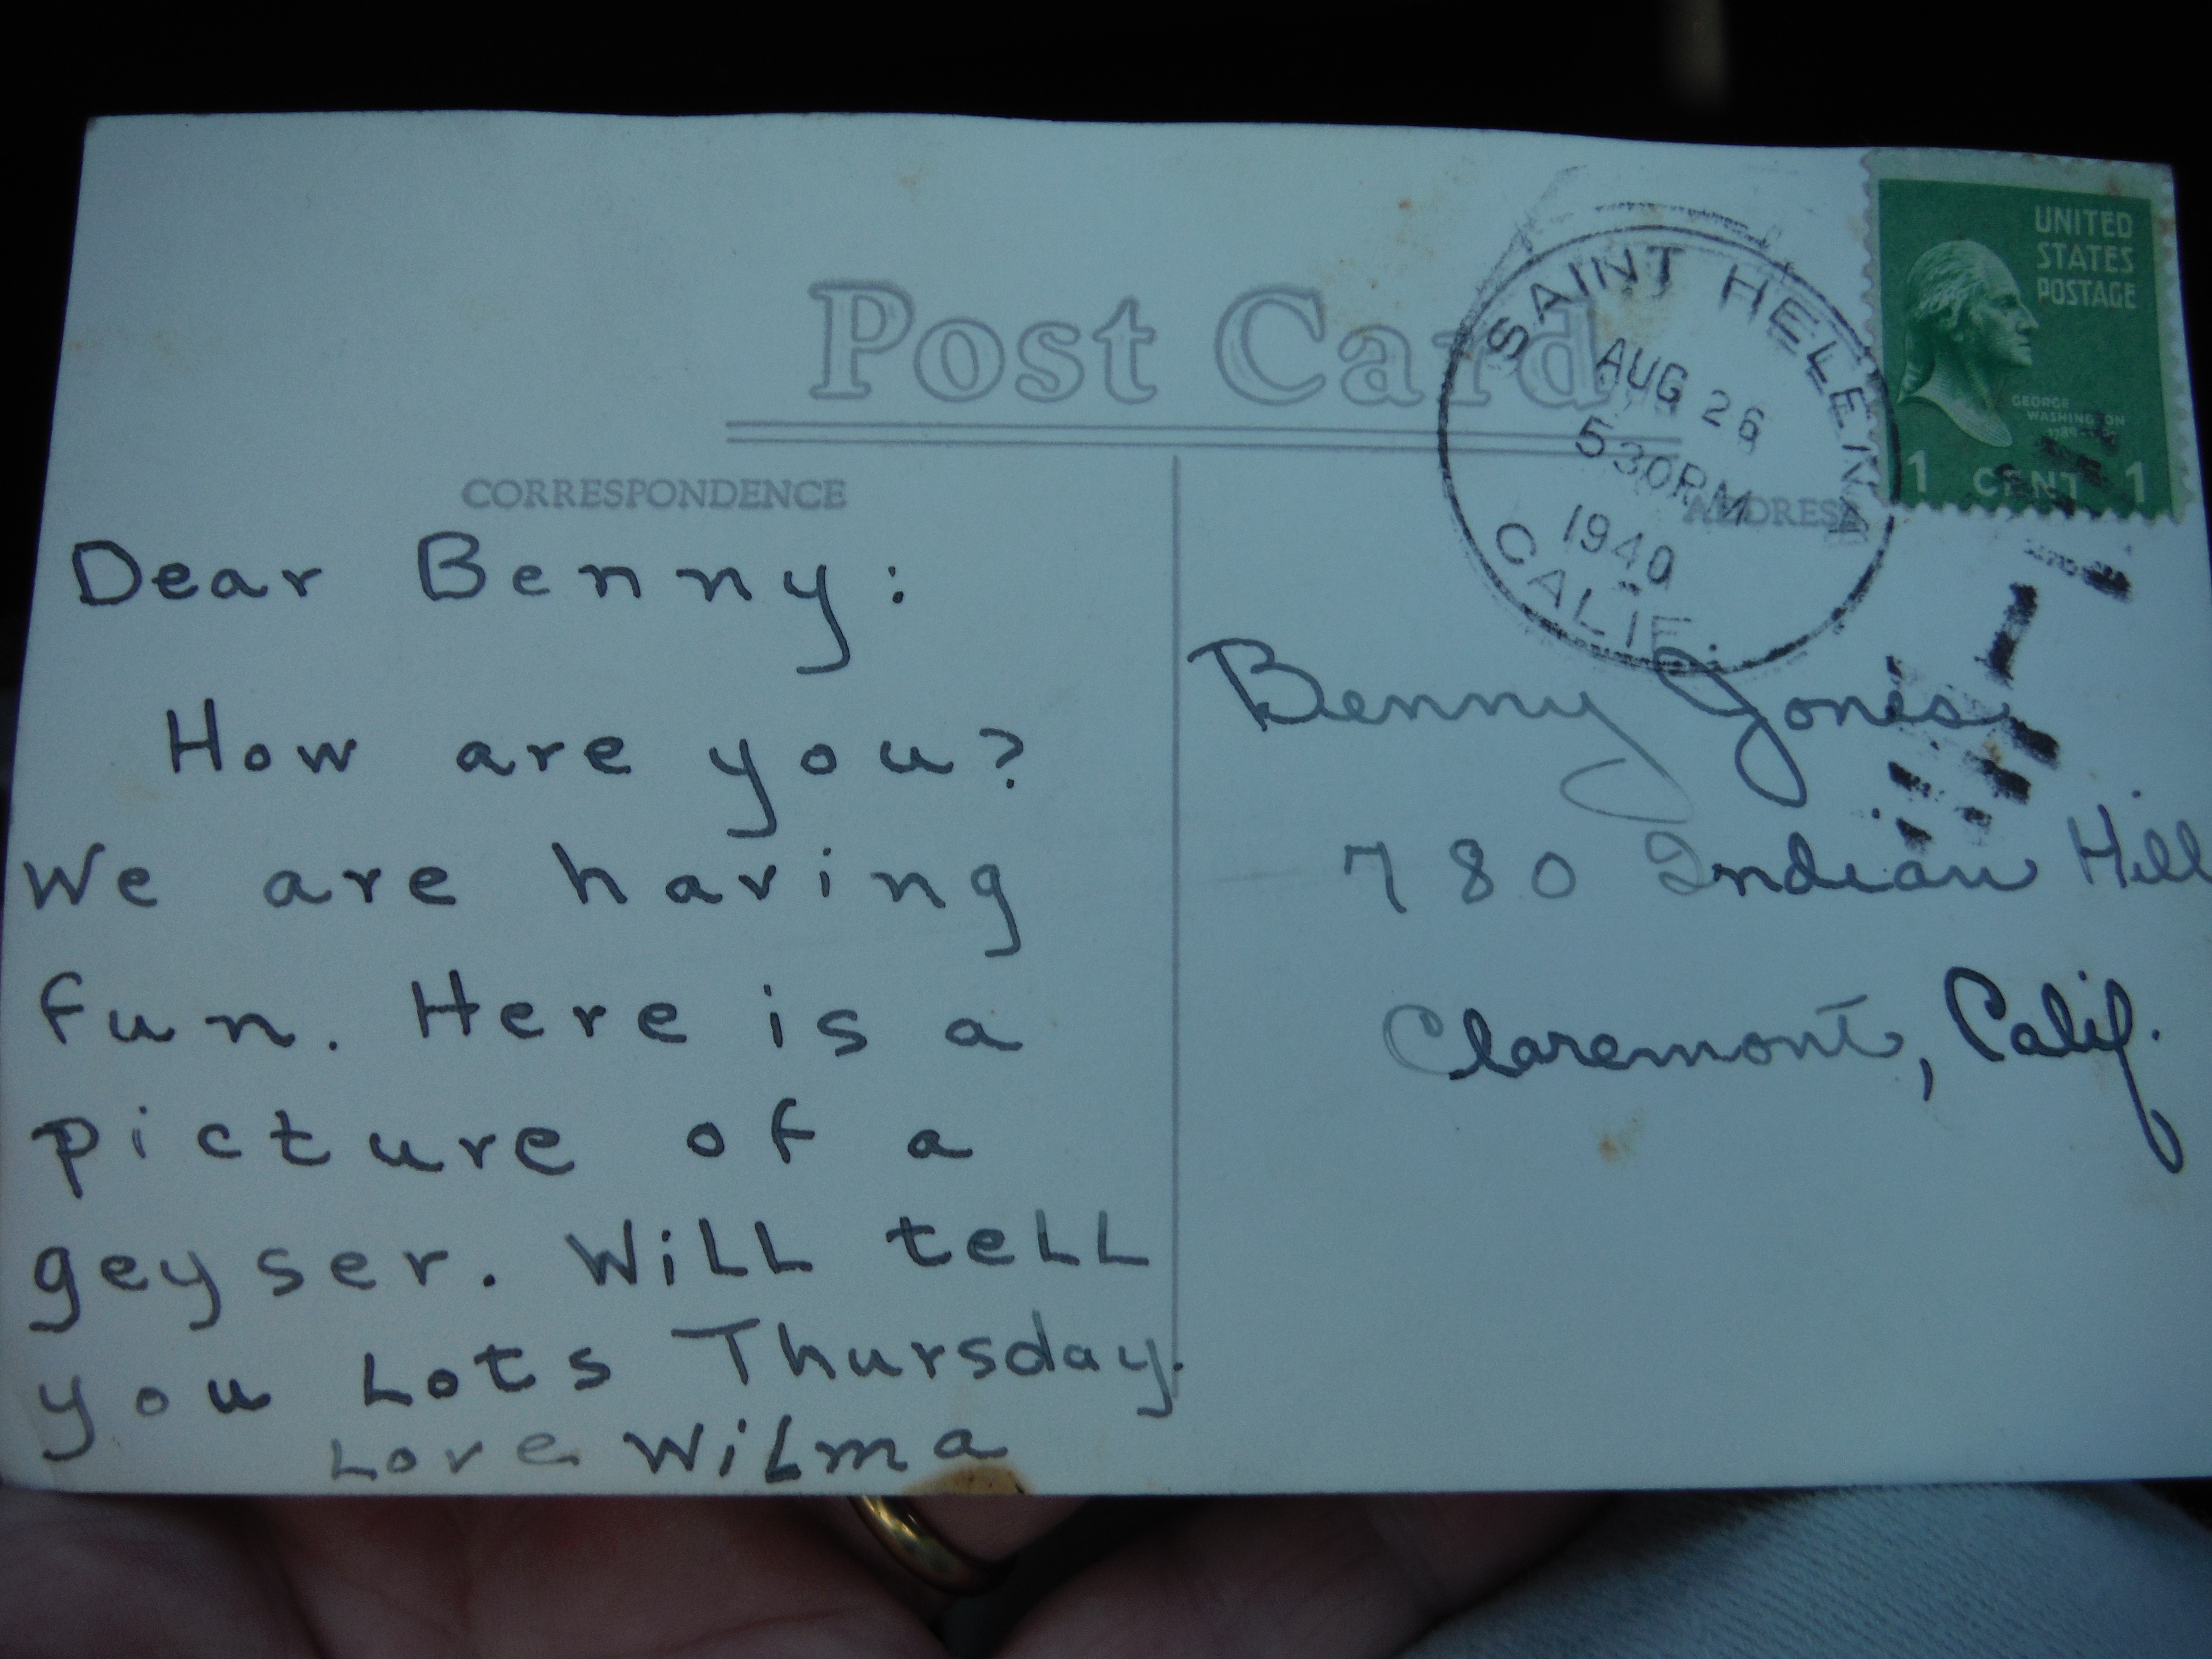 Post Card
SAINT HELENA
AUG 26
530PM
1940
CALIF.
UNITED
STATES
POSTAGE
GEORGE
WASHINGTON
1 CENT 1
CORRESPONDENCE
ADDRESS
Dear Benny:
How are you?
We are having
fun. Here is a
picture of a
geyser. Will tell
you Lots Thursday.
Love Wilma
Benny Jones
780 Indian Hill
Claremont, Calif.